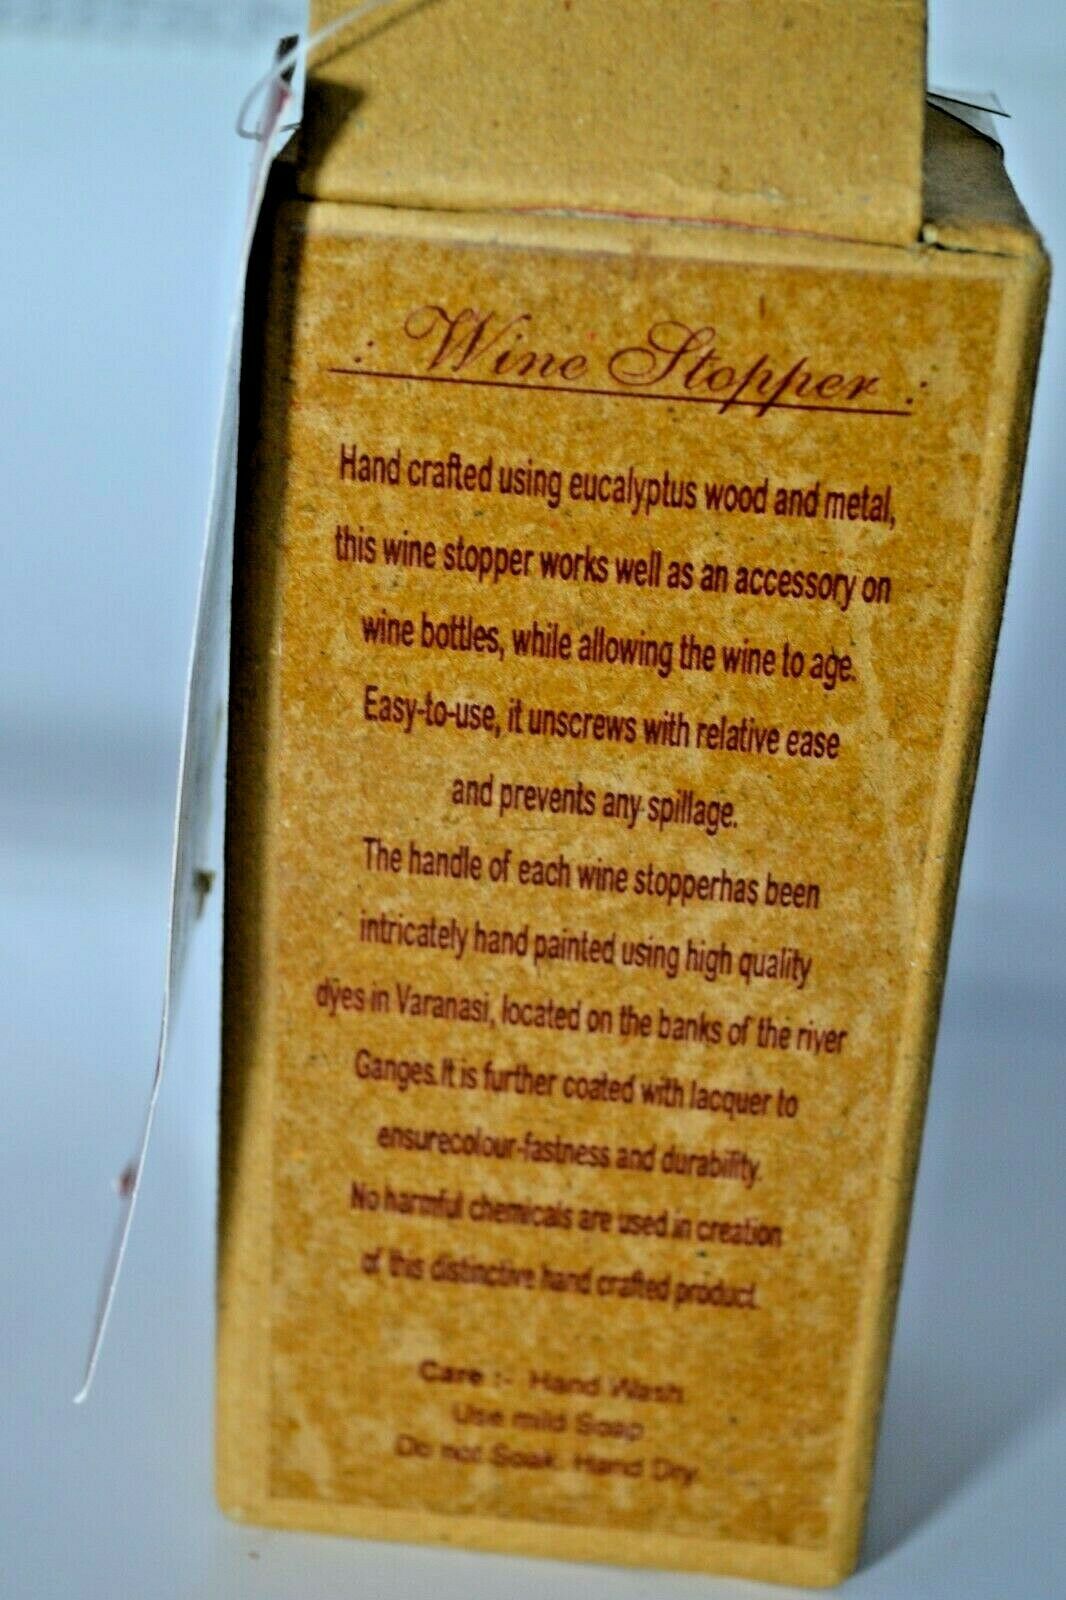 : Wine Stopper :
Hand crafted using eucalyptus wood and metal,
this wine stopper works well as an accessory on
wine bottles, while allowing the wine to age.
Easy-to-use, it unscrews with relative ease
and prevents any spillage.
The handle of each wine stopperhas been
intricately hand painted using high quality
dyes in Varanasi, located on the banks of the river
Ganges.It is further coated with lacquer to
ensurecolour-fastness and durability.
No harmful chemicals are used in creation
of this distinctive hand crafted product.
Care :- Hand Wash
Use mild Soap
Do not Soak. Hand Dry.